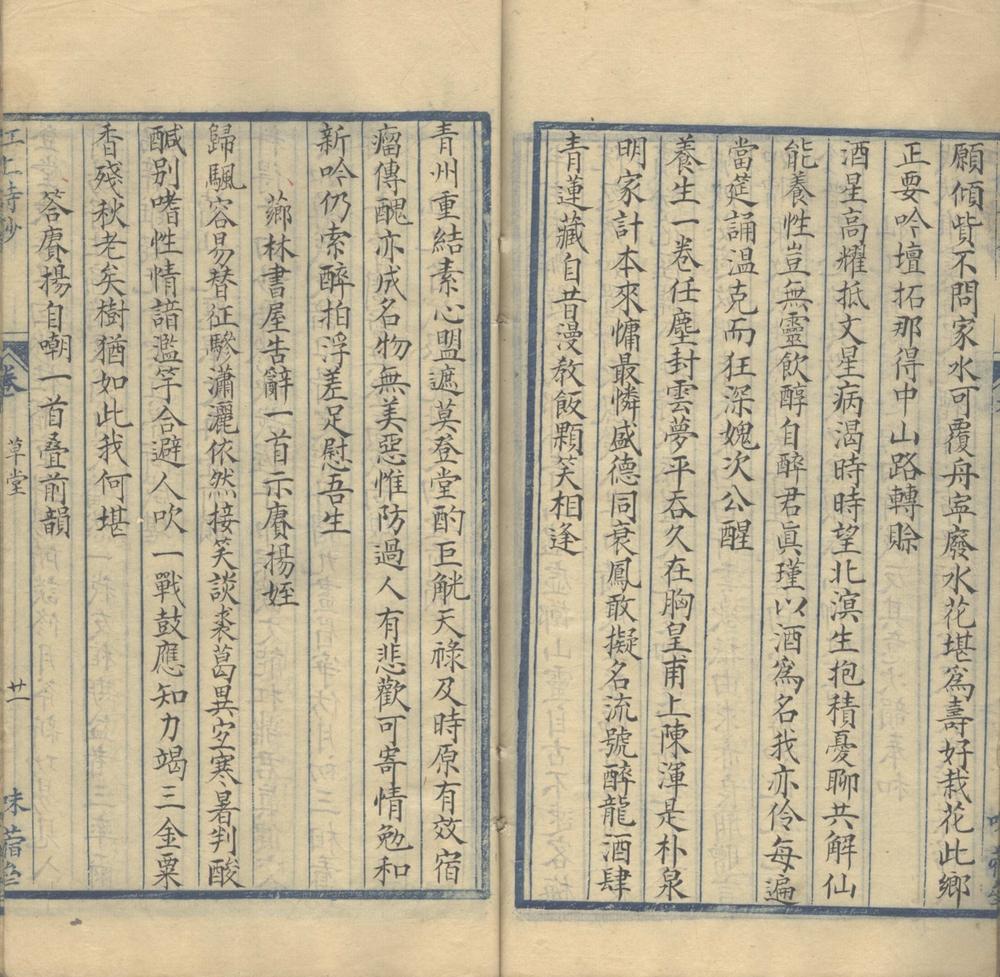 願傾貲不問家水可覆舟寧廢水花堪爲壽好栽花此鄉
正要吟壇拓那得中山路轉賒
酒星高耀抵文星病渴時時望北溟生抱積憂聊共解仙
能養性豈無靈飲醇自醉君眞瑾以酒爲名我亦伶每遍
當筵誦温克而狂深媿次公醒
養生一卷任塵封雲夢平吞久在胸皇甫上陳渾是朴泉
明家計本來慵最憐盛德同衰鳳敢擬名流號醉龍酒肆
青蓮藏自昔漫教飯顆笑相逢
青州重結素心盟遮莫登堂酌巨觥天祿及時原有效宿
瘤傳醜亦成名物無美惡惟防過人有悲歡可寄情勉和
新吟仍索醉拍浮差足慰吾生
薌林書屋告辭一首示賡揚姪
歸颿容易替征驂瀟灑依然接笑談裘葛異宜寒暑判酸
醎别嗜性情諳濫竽合避人吹一戰鼓應知力竭三金粟
香殘秋老矣樹猶如此我何堪
荅賡揚自嘲一首叠前韻
江上詩鈔
卷
草堂
廿一
味蕳